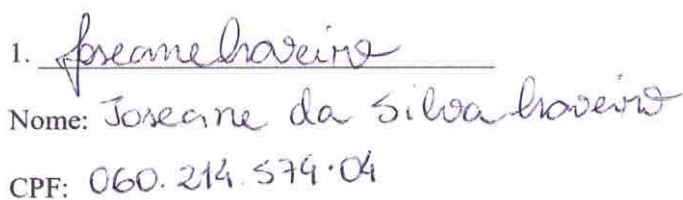 1. Joseane Loveira
Nome: Joseane da Silva Loveira
CPF: 060.214.574-04